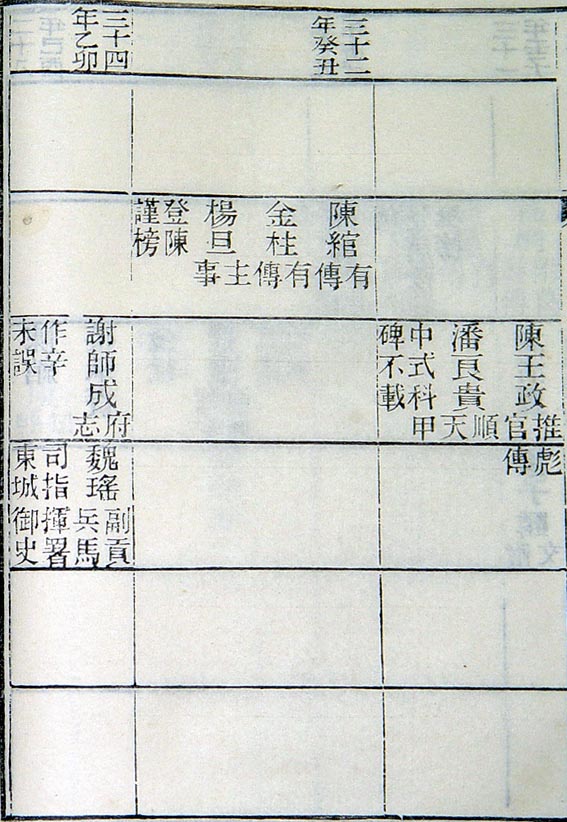 陳王政推
官
彪
傳
潘良貴順
天
中式科甲
碑不載
三十二
年癸丑
陳綰有
傳
金柱有
傳
楊旦主
事
登陳
謹榜
三十四
年乙卯
謝師成府
志
作辛
未誤
魏瑤副貢
兵馬
司指揮署
東城御史